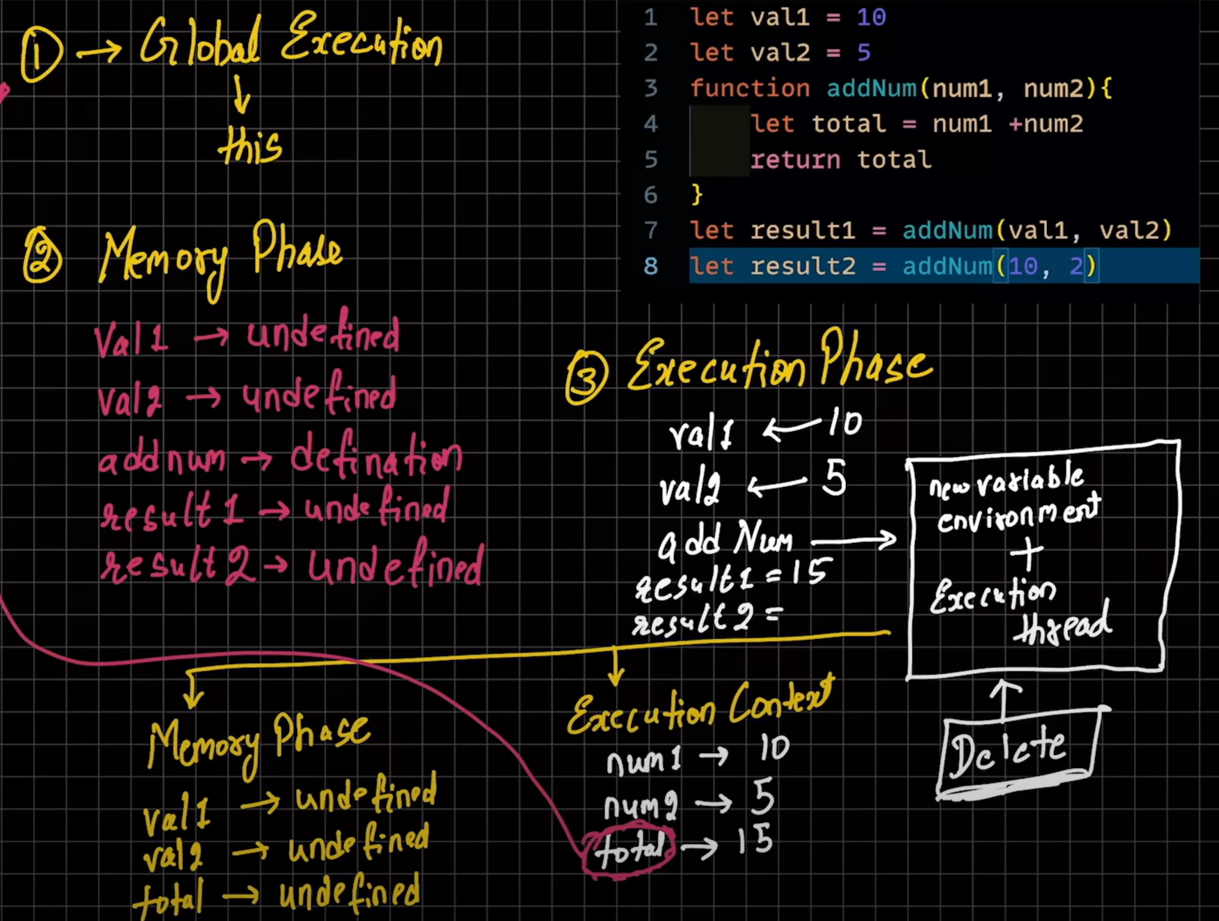 ① → Global Execution
↓
this
② Memory Phase
val1 → undefined
val2 → undefined
addnum → defination
result1 → undefined
result2 → undefined
1 let val1 = 10
2 let val2 = 5
3 function addNum(num1, num2){
4 let total = num1 +num2
5 return total
6 }
7 let result1 = addNum(val1, val2)
8 let result2 = addNum(10, 2)
③ Execution Phase
val1 ← 10
val2 ← 5
addNum →
result1 = 15
result2 =
new variable
environment
+
Execution
thread
Delete
Memory Phase
val1 → undefined
val2 → undefined
total → undefined
Execution Context
num1 → 10
num2 → 5
total → 15